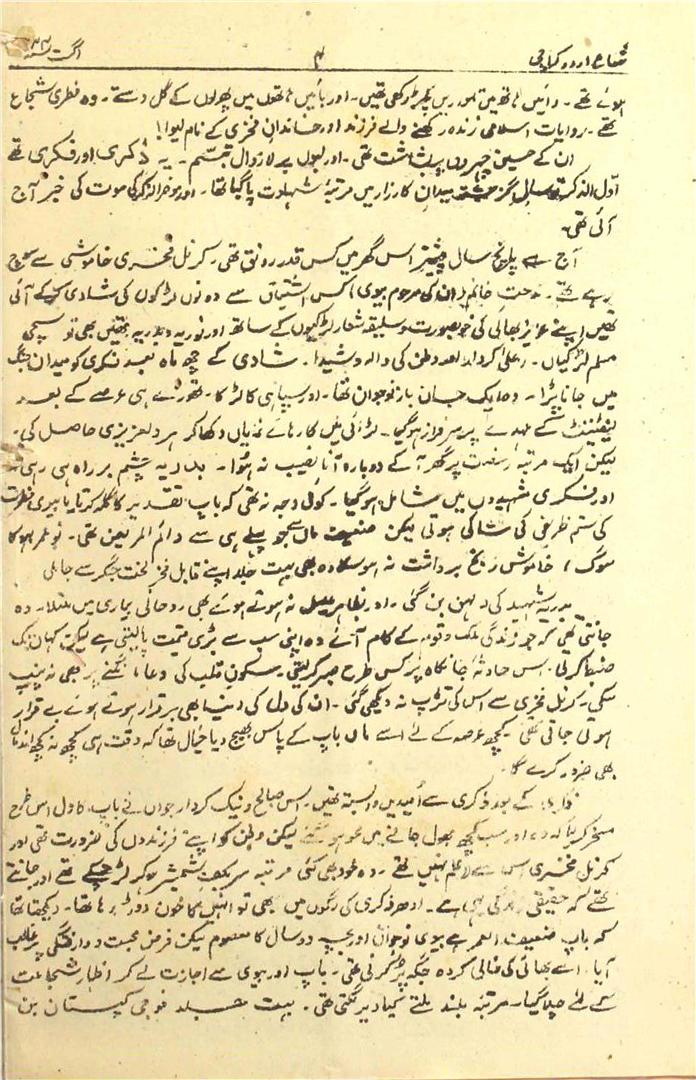 شعاع اردو کراچی ۴ اگست ۴۴ء
ہوئے تھے۔ دائیں ہاتھ میں تلواریں پکڑ رکھی تھیں۔ اور بائیں ہاتھوں میں پھولوں کے گل دستے۔ وہ فطری شجاع
تھے۔ روایات اسلامی زندہ رکھنے والے فرزند اور خاندان فخری کے نام لیوا!
ان کے حسین چہروں پر بشاشت تھی۔ اور لبوں پہ لازوال تبسّم۔ یہ ذکری اور فکری تھے
اول الذکر تو سال گزشتہ میدان کارزار میں مرتبۂ شہادت پا گیا تھا۔ اور موخر الذکر کی موت کی خبر آج
آئی تھی۔
آج سے پانچ سال پیشتر اس گھر میں کس قدر رونق تھی۔ کرنل فخری خاموشی سے سوچ
رہے تھے۔ مدحت خانم (ان کی مرحوم بیوی) کس اشتیاق سے دونوں لڑکوں کی شادی کر کے آئی
تھیں اپنے عزیز بھائی کی خوبصورت و سلیقہ شعار لڑکیوں کے ساتھ اور نوریہ و بدریہ تھیں بھی تو سچی
مسلم لڑکیاں۔ اعلیٰ کردار اور وطن کی والہ و شیدا۔ شادی کے چھ ماہ بعد فکری کو میدان جنگ
میں جانا پڑا۔ وہ ایک جان باز نوجوان تھا۔ اور سپاہی کا لڑکا۔ تھوڑے ہی عرصے کے بعد
لیفٹیننٹ کے عہدے پر سرفراز ہو گیا۔ لڑائی میں کارہائے نمایاں دکھا کر ہر دلعزیزی حاصل کی۔
لیکن ایک مرتبہ رخصت پر گھر آ کے دوبارہ آنا نصیب نہ ہوا۔ بدریہ چشم بر راہ ہی رہی
اور فکری شہیدوں میں شامل ہو گیا۔ کوئی وجہ نہ تھی کہ باپ تقدیر کا گلہ کرتا یا بیوی فطرت
کی ستم ظریفی کی شاکی ہوتی لیکن ضعیف ماں سے جو پہلے ہی سے دائم المریض تھی۔ نو عمر بہو کا
سوگ، خاموش رنج برداشت نہ ہو سکا وہ بھی بہت جلد اپنے قابل فخر لخت جگر سے جا ملی
بدریہ شہید کی دلہن بن گئی۔ اور بظاہر علیل نہ ہوتے ہوئے بھی روحانی بیماری میں مبتلا۔ وہ
جانتی تھی کہ جو زندگی ملک و قوم کے کام آئے وہ اپنی سب سے بڑی قیمت پا لیتی ہے لیکن کہاں تک
ضبط کرتی۔ اس حادثہ جانکاہ پر کس طرح صبر کر لیتی۔ سکونِ قلب کی دعا، مانگنے پر بھی نہ پنپ
سکی۔ کرنل فخری سے اس کی تڑپ نہ دیکھی گئی۔ ان کی دل کی دنیا بھی برقرار ہوتے ہوئے بے قرار
ہوئی جاتی تھی کچھ عرصہ کے لئے اسے ماں باپ کے پاس بھیج دیا خیال تھا کہ وقت اس کچھ نہ کچھ اندمال
بھی ضرور کرے گا۔
فکری کے بعد ذکری سے اُمیدیں وابستہ تھیں۔ اس صالح و نیک کردار جواں نے باپ کا دل اس طرح
مسخر کر لیا کہ وہ اور سب کچھ بھول جانے میں محو ہو گئے لیکن وطن کو اپنے فرزندوں کی ضرورت تھی اور
کرنل فخری اس سے لا علم نہیں تھے۔ وہ خود بھی کئی مرتبہ سر بکف شمشیر ہو کر لڑ چکے تھے اور جانتے
تھے کہ حقیقی زندگی یہی ہے۔ ادھر ذکری کی رگوں میں بھی تو انہیں کا خون دوڑ رہا تھا۔ دیکھتا تھا
کہ باپ ضعیف العمر ہے بیوی نوجوان اور بچہ دو سال کا معصوم لیکن فرض محبت و وارفتگی پر غالب
آیا۔ اسے بھائی کی خالی کردہ جگہ پُر کرنی تھی۔ باپ اور بیوی سے اجازت لے کر اظہار شجاعت
کے لئے چلا گیا۔ مرتبہ بلند ملتے کیا دیر لگتی تھی۔ بہت جلد فوجی کپتان بن